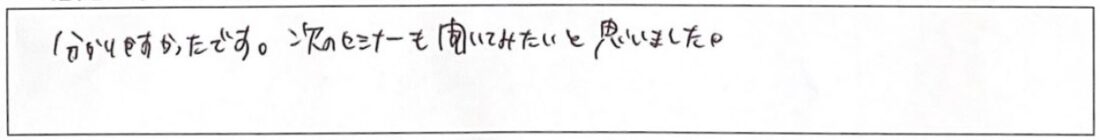 分かりやすかったです。次のセミナーも聞いてみたいと思いました。